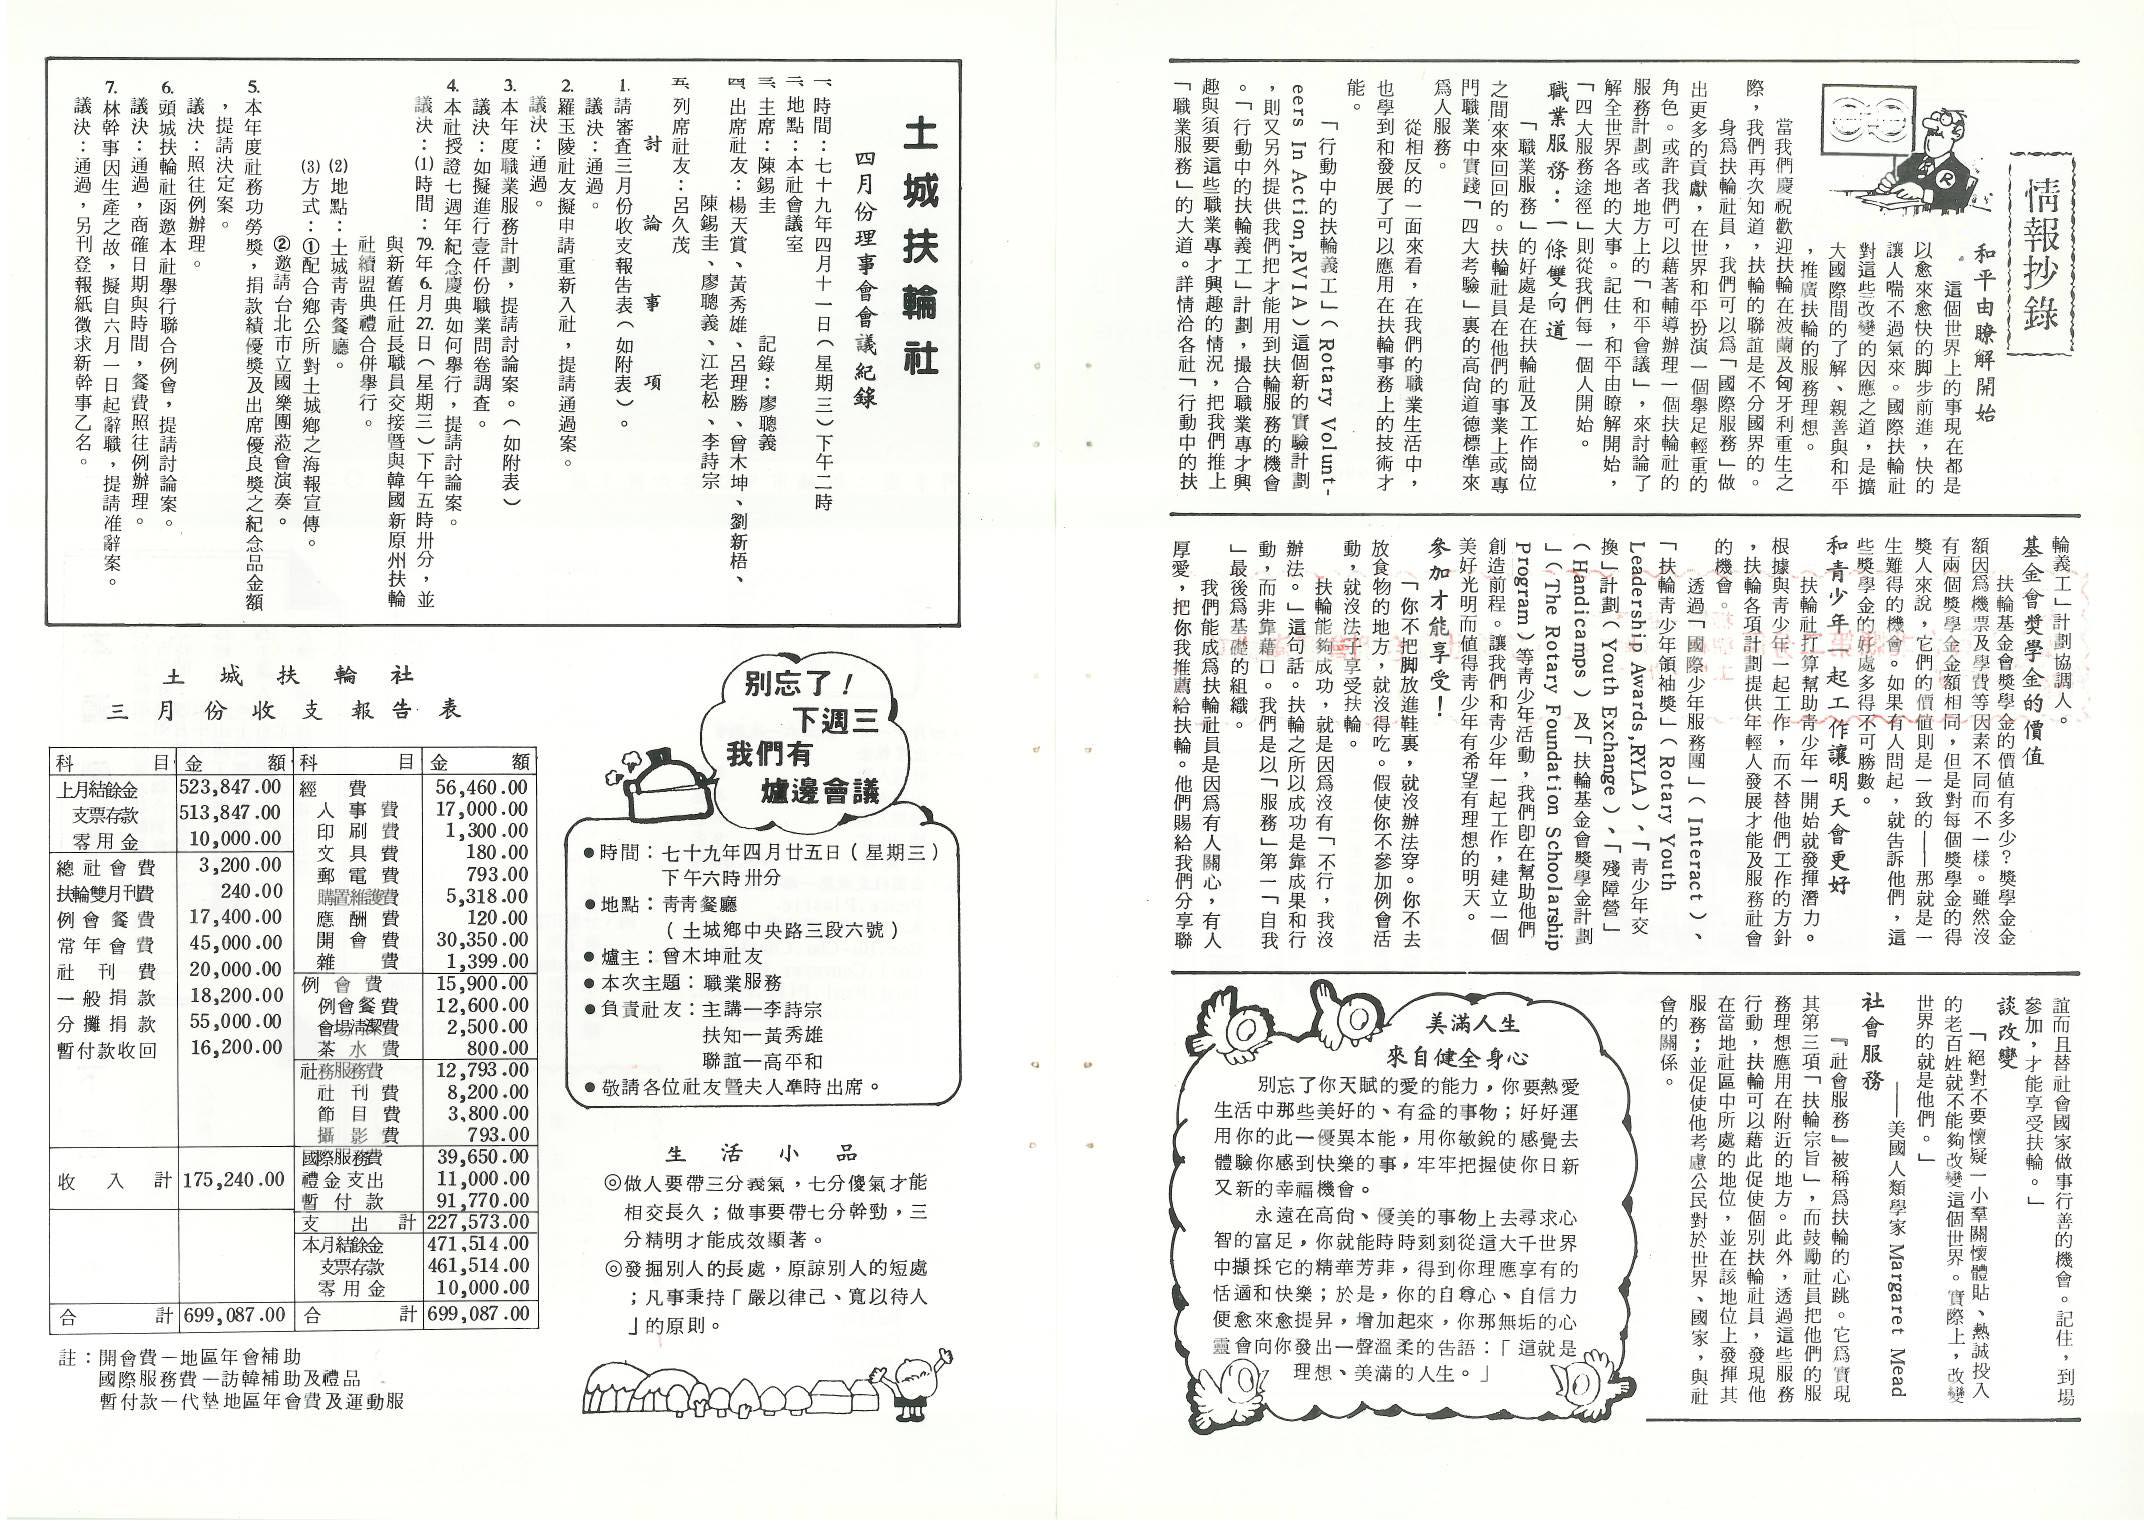 情報抄錄
和平由瞭解開始
這個世界上的事現在都是
以愈來愈快的脚步前進，快的
讓人喘不過氣來。國際扶輪社
對這些改變的因應之道，是擴
大國際間的了解、親善與和平
，推廣扶輪的服務理想。
當我們慶祝歡迎扶輪在波蘭及匈牙利重生之
際，我們再次知道，扶輪的聯誼是不分國界的。
身爲扶輪社員，我們可以爲「國際服務」做
出更多的貢獻，在世界和平扮演一個舉足輕重的
角色。或許我們可以藉著輔導辦理一個扶輪社的
服務計劃或者地方上的「和平會議」，來討論了
解全世界各地的大事。記住，和平由瞭解開始，
「四大服務途徑」則從我們每一個人開始。
職業服務：一條雙向道
「職業服務」的好處是在扶輪社及工作崗位
之間來來回回的。扶輪社員在他們的事業上或專
門職業中實踐「四大考驗」裏的高尙道德標準來
爲人服務。
從相反的一面來看，在我們的職業生活中，
也學到和發展了可以應用在扶輪事務上的技術才
能。
「行動中的扶輪義工」（Rotary Volunt-
eers In Action,RVIA）這個新的實驗計劃
，則又另外提供我們把才能用到扶輪服務的機會
。「行動中的扶輪義工」計劃，撮合職業專才興
趣與須要這些職業專才興趣的情況，把我們推上
「職業服務」的大道。詳情洽各社「行動中的扶
輪義工」計劃協調人。
基金會獎學金的價值
扶輪基金會獎學金的價值有多少？獎學金金
額因爲機票及學費等因素不同而不一樣。雖然沒
有兩個獎學金金額相同，但是對每個獎學金的得
獎人來說，它們的價値則是一致的——那就是一
生難得的機會。如果有人問起，就告訴他們，這
些獎學金的好處多得不可勝數。
和靑少年一起工作讓明天會更好
扶輪社打算幫助靑少年一開始就發揮潛力。
根據與靑少年一起工作，而不替他們工作的方針
，扶輪各項計劃提供年輕人發展才能及服務社會
的機會。
透過「國際少年服務團」（Interact）、
「扶輪靑少年領袖獎」（Rotary Youth
Leadership Awards,RYLA）、「靑少年交
換」計劃（Youth Exchange）、「殘障營」
（Handicamps）及「扶輪基金會獎學金計劃
」（The Rotary Foundation Schoolarship
Program）等靑少年活動，我們卽在幫助他們
創造前程。讓我們和靑少年一起工作，建立一個
美好光明而値得靑少年有希望有理想的明天。
參加才能享受！
「你不把脚放進鞋裏，就沒辦法穿。你不去
放食物的地方，就沒得吃。假使你不參加例會活
動，就沒法子享受扶輪。
扶輪能夠成功，就是因爲沒有「不行，我沒
辦法。」這句話。扶輪之所以成功是靠成果和行
動，而非靠藉口。我們是以「服務」第一「自我
」最後爲基礎的組織。
我們能成爲扶輪社員是因爲有人關心，有人
厚愛，把你我推薦給扶輪。他們賜給我們分享聯
誼而且替社會國家做事行善的機會。記住，到場
參加，才能享受扶輪。」
談改變
「絕對不要懷疑一小羣關懷體貼、熱誠投入
的老百姓就不能夠改變這個世界。實際上，改變
世界的就是他們。」
——美國人類學家 Margaret Mead
社會服務
『社會服務』被稱爲扶輪的心跳。它爲實現
其第三項「扶輪宗旨」，而鼓勵社員把他們的服
務理想應用在附近的地方。此外，透過這些服務
行動，扶輪可以藉此促使個別扶輪社員，發現他
在當地社區中所處的地位，並在該地位上發揮其
服務；並促使他考慮公民對於世界、國家，與社
會的關係。
美滿人生
來自健全身心
別忘了你天賦的愛的能力，你要熱愛
生活中那些美好的、有益的事物；好好運
用你的此一優異本能，用你敏銳的感覺去
體驗你感到快樂的事，牢牢把握使你日新
又新的幸福機會。
永遠在高尙、優美的事物上去尋求心
智的富足，你就能時時刻刻從這大千世界
中擷採它的精華芳菲，得到你理應享有的
恬適和快樂；於是，你的自尊心、自信力
便愈來愈提昇，增加起來，你那無垢的心
靈會向你發出一聲溫柔的告語：「這就是
理想、美滿的人生。」
土城扶輪社
四月份理事會會議紀錄
一、時間：七十九年四月十一日（星期三）下午二時
二、地點：本社會議室
三、主席：陳錫圭　記錄：廖聰義
四、出席社友：楊天賞、黃秀雄、呂理勝、曾木坤、劉新梧、
陳錫圭、廖聰義、江老松、李詩宗
五、列席社友：呂久茂
討論事項
1.請審查三月份收支報告表（如附表）。
議決：通過。
2.羅玉陵社友擬申請重新入社，提請通過案。
議決：通過。
3.本年度職業服務計劃，提請討論案。（如附表）
議決：如擬進行壹仟份職業問卷調查。
4.本社授證七週年紀念慶典如何舉行，提請討論案。
議決：(1)時間：79年6月27日（星期三）下午五時卅分，並
與新舊任社長職員交接暨與韓國新原州扶輪
社續盟典禮合併舉行。
(2)地點：土城靑靑餐廳。
(3)方式：①配合鄉公所對土城鄉之海報宣傳。
②邀請台北市立國樂團蒞會演奏。
5.本年度社務功勞獎，捐款績優獎及出席優良獎之紀念品金額
，提請決定案。
議決：照往例辦理。
6.頭城扶輪社函邀本社舉行聯合例會，提請討論案。
議決：通過，商確日期與時間，餐費照往例辦理。
7.林幹事因生產之故，擬自六月一日起辭職，提請准辭案。
議決：通過，另刊登報紙徵求新幹事乙名。
別忘了！
下週三
我們有
爐邊會議
●時間：七十九年四月廿五日（星期三）
下午六時卅分
●地點：靑靑餐廳
（土城鄉中央路三段六號）
●爐主：曾木坤社友
●本次主題：職業服務
●負責社友：主講—李詩宗
扶知—黃秀雄
聯誼—高平和
●敬請各位社友暨夫人準時出席。
生活小品
◎做人要帶三分義氣，七分傻氣才能
相交長久；做事要帶七分幹勁，三
分精明才能成效顯著。
◎發掘別人的長處，原諒別人的短處
；凡事秉持「嚴以律己、寬以待人
」的原則。
土城扶輪社
三月份收支報告表
科目 金額 科目 金額
上月結餘金 523,847.00 經費 56,460.00
支票存款 513,847.00 人事費 17,000.00
零用金 10,000.00 印刷費 1,300.00
總社會費 3,200.00 文具費 180.00
扶輪雙月刊費 240.00 郵電費 793.00
例會餐費 17,400.00 購置維護費 5,318.00
常年會費 45,000.00 應酬費 120.00
社刊費 20,000.00 開會費 30,350.00
一般捐款 18,200.00 雜費 1,399.00
分攤捐款 55,000.00 例會費 15,900.00
暫付款收回 16,200.00 例會餐費 12,600.00
會場清潔費 2,500.00
茶水費 800.00
社務服務費 12,793.00
社刊費 8,200.00
節目費 3,800.00
攝影費 793.00
國際服務費 39,650.00
收入計 175,240.00 禮金支出 11,000.00
暫付款 91,770.00
支出計 227,573.00
本月結餘金 471,514.00
支票存款 461,514.00
零用金 10,000.00
合計 699,087.00 合計 699,087.00
註：開會費—地區年會補助
國際服務費—訪韓補助及禮品
暫付款—代墊地區年會費及運動服